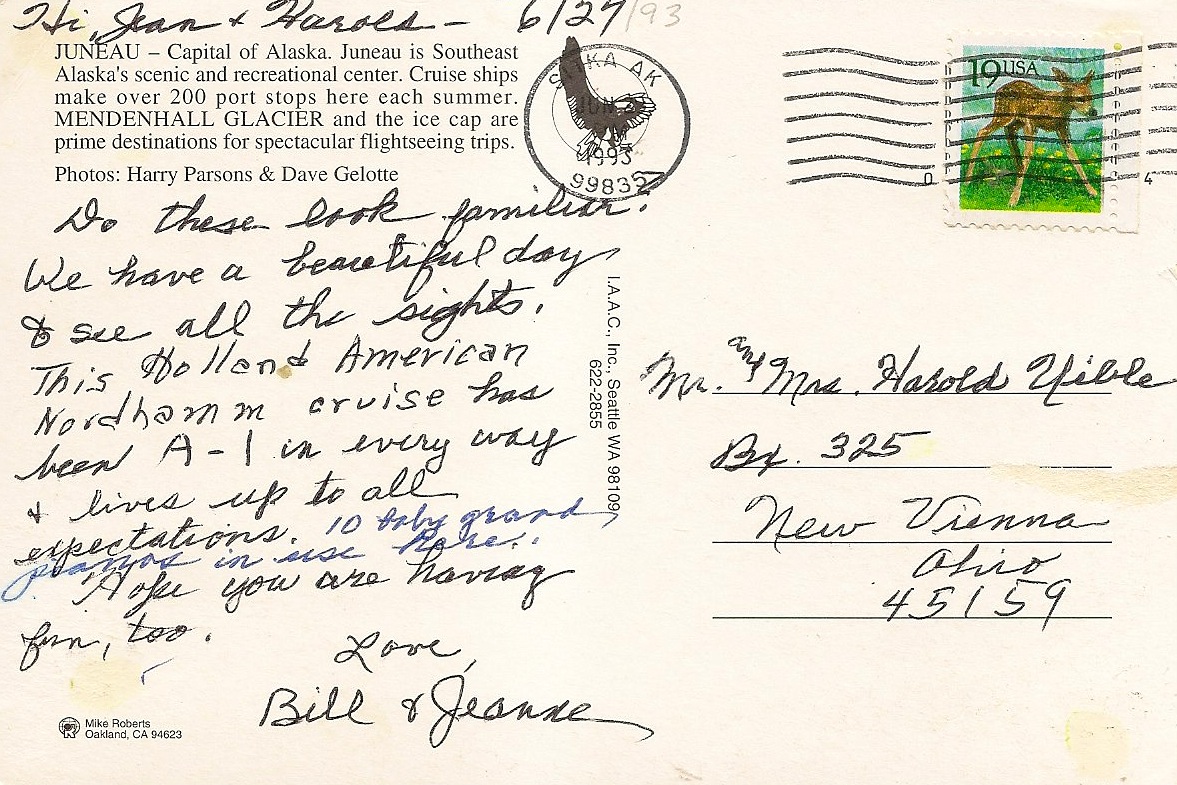 Hi, Jean & Harold - 6/27/93
JUNEAU – Capital of Alaska. Juneau is Southeast
Alaska's scenic and recreational center. Cruise ships
make over 200 port stops here each summer.
MENDENHALL GLACIER and the ice cap are
prime destinations for spectacular flightseeing trips.
Photos: Harry Parsons & Dave Gelotte
Do these look familiar?
We have a beautiful day
& see all the sights.
This Holland American
Nordhamm cruise has
been A-1 in every way
& lives up to all
expectations. 10 baby grand
pianos in use here.
Hope you are having
fun, too.
Love,
Bill & Jeanne
Mike Roberts
Oakland, CA 94623
I.A.A.C., Inc., Seattle WA 98109
622-2855
SITKA AK
JUN
1993
99835
19 USA
0 4
Mr. and Mrs. Harold Uible
Bx. 325
New Vienna
Ohio
45159